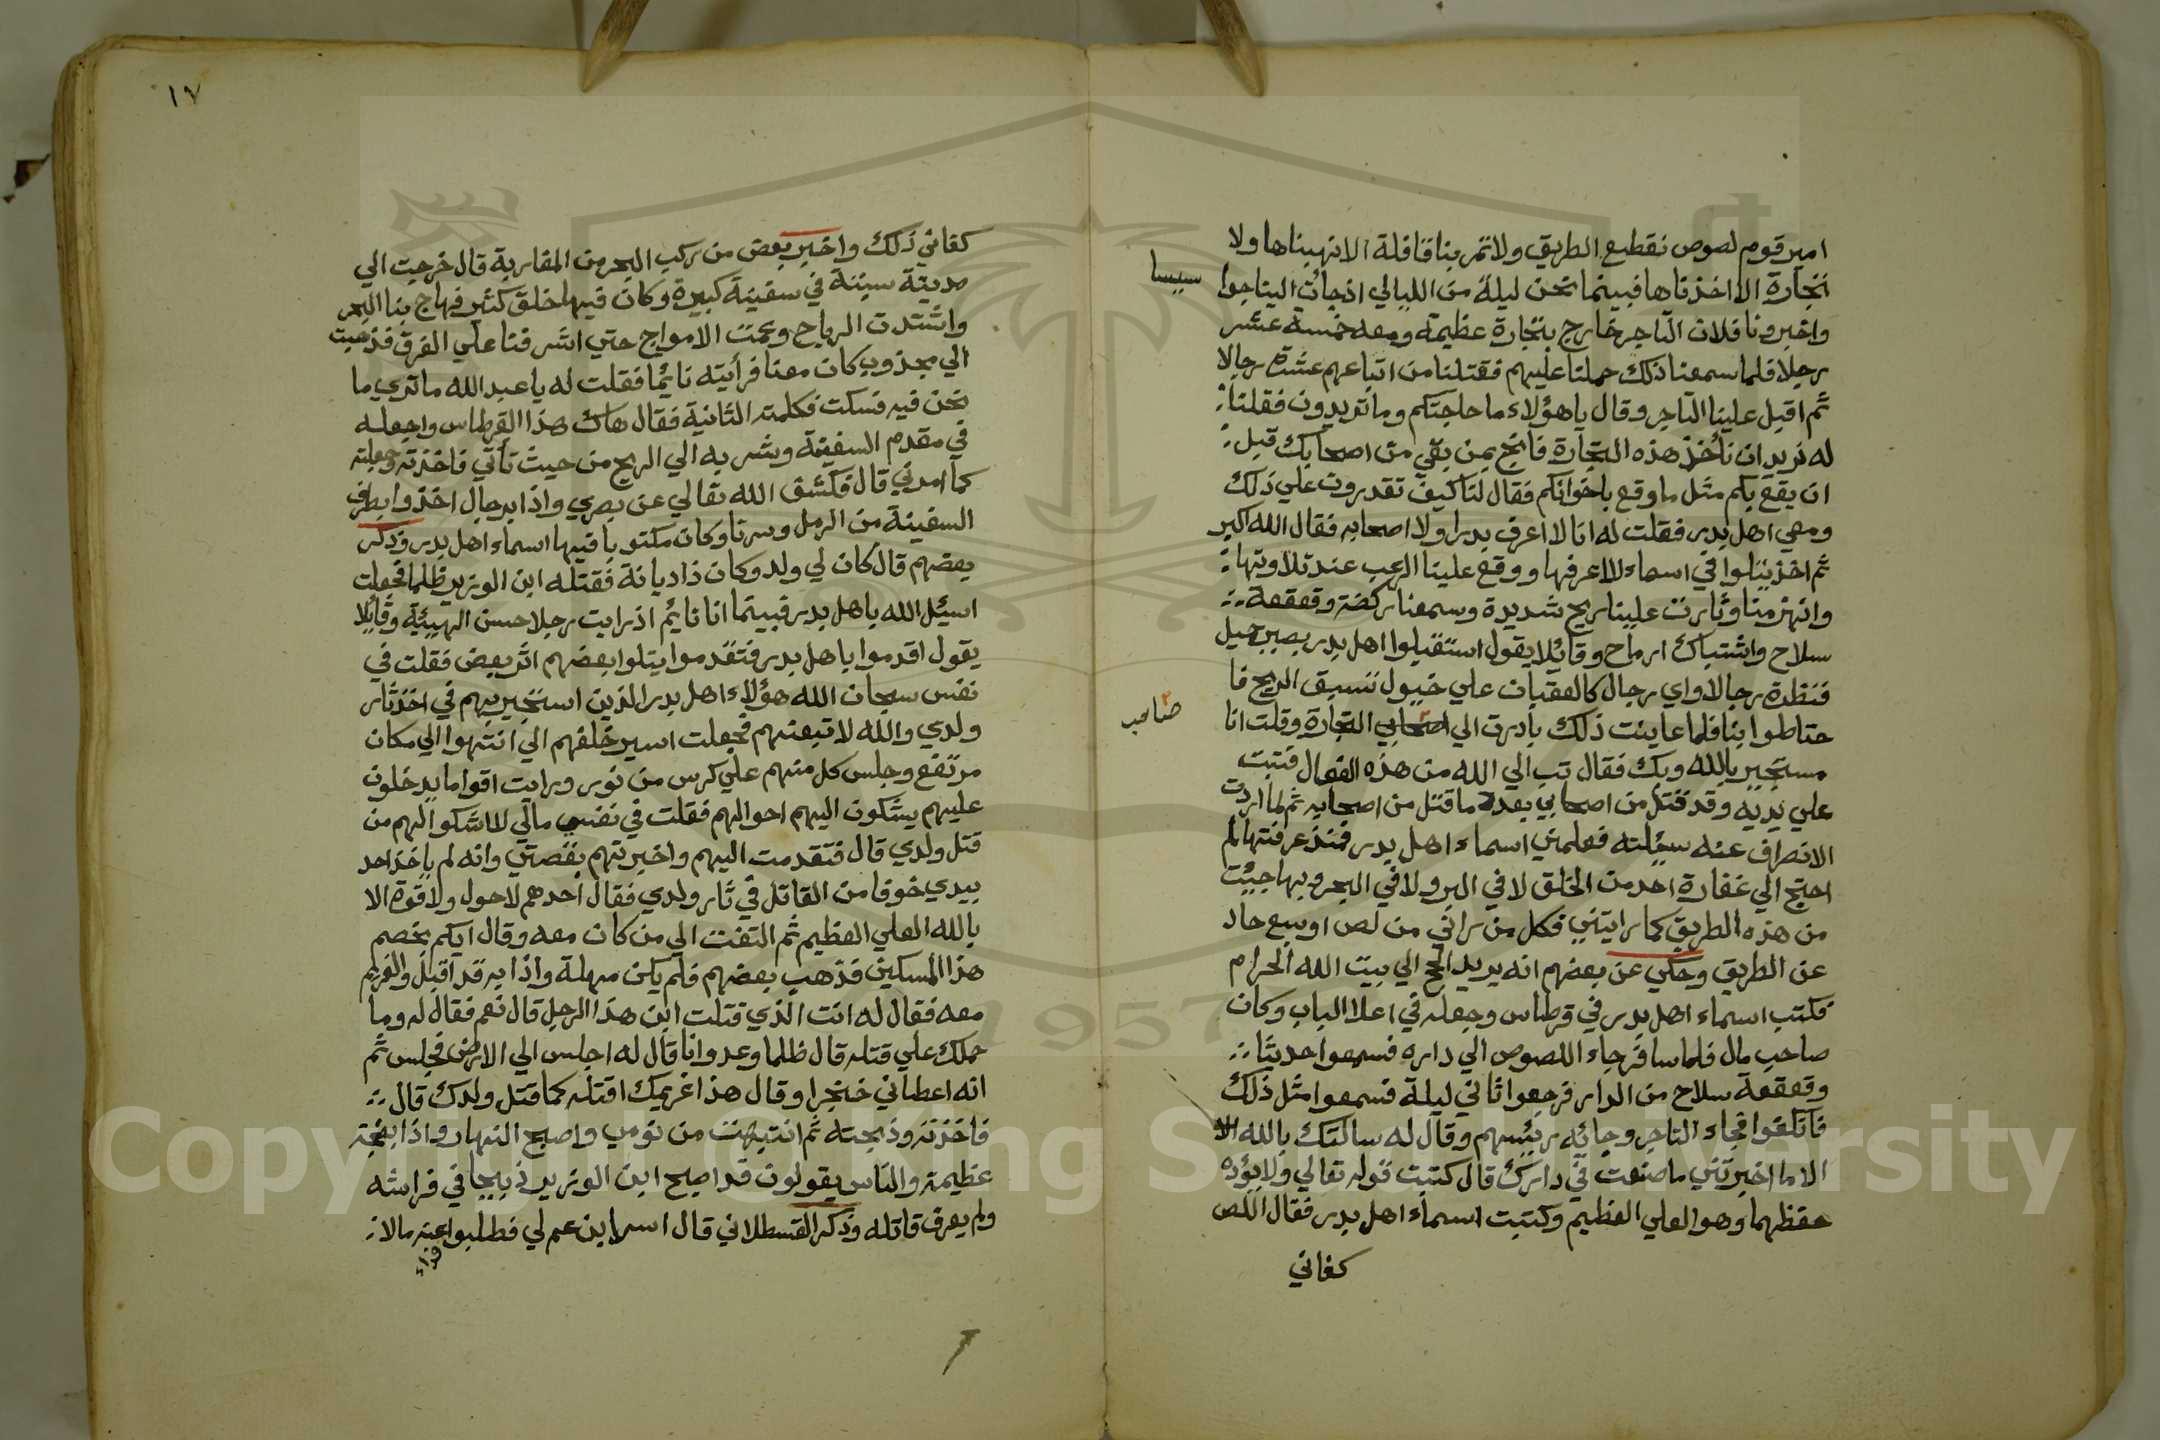 امير قوم لصوص نقطع الطريق ولا تمر بنا قافلة الا نهبناها ولا
تجارة الا اخذناها فبينما نحن ليلة من الليالي اذ جائت الينا
واخبرونا فلان التاجر خارج بتجارة عظيمة ومعه خمسة عشر
رجلا فلما سمعنا ذلك حملنا عليهم فقتلنا من اتباعهم عشرة رجالا
ثم اقبل علينا التاجر وقال يا هؤلاء ما حاجتكم وما تريدون فقلنا
له نريد ان نأخذ هذه التجارة فانج بمن بقي من اصحابك قبل
ان يقع بكم مثل ما وقع باخوانكم فقال لنا كيف تقدرون علي ذلك
ومعي اهل بدر فقلت له انا لا اعرف بدرا ولا اصحابه فقال الله اكبر
ثم اخذ يتلوا في اسماء لا اعرفها ووقع علينا الرعب عند تلاوتها
وانهزمنا وثارت علينا ريح شديدة وسمعنا ركضة وقعقعة
سلاح واشتباك ارماح وقائلا يقول استقبلوا اهل بدر بصبر جميل
فنظرة رجالا واي رجال كالعقبان علي خيول تسبق الريح فا
حتاطوا بنا فلما عاينت ذلك بادرت الي اصحابي التجارة وقلت انا
مستجير بالله وبك فقال تب الي الله من هذه الفعال فتبت
علي يديه وقد قتل من اصحابي بعدة ما قتل من اصحابه ثم لما اردت
الانصراف عنه سئلته فعلمني اسماء اهل بدر فمنذ عرفتها لم
احتج الي غفارة احد من الخلق لا في البر ولا في البحر وبها جيئت
من هذه الطريق كما رايتني فكل من راني من لص او سبع حاد
عن الطريق وحكي عن بعضهم انه يريد الحج الي بيت الله الحرام
فكتب اسماء اهل بدر في قرطاس وجعله في اعلا الباب وكان
صاحب مال فلما سافر جاء اللصوص الي داره فسمعوا حديثا
وقعقعة سلاح من الدار فرجعوا ثاني ليلة فسمعوا مثل ذلك
فانكفوا فجاء التاجر وجائه رئيسهم وقال له سالتك بالله الا
الا ما اخبرتني ما صنعت في دارك قال كتبت قوله تعالي ولا يؤده
حفظهما وهو العلي العظيم وكتبت اسماء اهل بدر فقال اللص
كفاني
صاحب
١٧
كفاني ذلك واخبر بعض من ركب البحر من المغاربة قال خرجت الي
مدينة سبتة في سفينة كبيرة وكان فيها خلق كثير فهاج بنا البحر
واشتدت الرياح وعمت الامواج حتي اشرفنا علي الغرق فذهبت
الي مجذوب كان معنا فرأيته نائما فقلت له يا عبد الله ما تري ما
نحن فيه فسكت فكلمته الثانية فقال هاك هذا القرطاس واجعله
في مقدم السفينة وشر به الي الريح من حيث تأتي فاخذته وجعلته
كما امرني قال فكشف الله تعالي عن بصري واذا برجال اخذوا بطرف
السفينة من الرمل وسرنا وكان مكتوبا فيها اسماء اهل بدر وذكر
بعضهم قال كان لي ولد وكان ذا ديانة فقتله ابن الوزير ظلما فجعلت
اسئل الله باهل بدر فبينما انا نايم اذ رايت رجلا حسن الهيئية وقائلا
يقول اقدموا يا هل بدر فتقدموا يتلوا بعضهم اثر بعض فقلت في
نفس سبحان الله هؤلاء اهل بدر الذين استخير بهم في اخذ ثار
ولدي والله لا تبعنهم فجعلت اسير خلفهم الي انتهوا الي مكان
مرتفع وجلس كل منهم علي كرس من نور ورايت اقواما يدخلون
عليهم يشكون اليهم احوالهم فقلت في نفسي مالي لا اشكوا الهم من
قتل ولدي قال فتقدمت اليهم واخبرتهم بقصتي وانه لم ياخذ احد
بيدي خوفا من القاتل في ثار ولدي فقال احدهم لا حول ولا قوة الا
بالله العلي العظيم ثم التفت الي من كان معه وقال ايكم بخصم
هذا المسكين فذهب بعضهم فلم يكن مهلة واذا به قد اقبل والغريم
معه فقال له انت الذي قتلت ابن هذا الرجل قال نعم فقال له وما
حملك علي قتله قال ظلما وعدوانا قال له اجلس الي الارض فجلس ثم
انه اعطاني خنجرا وقال هذا غريمك اقتله كما قتل ولدك قال
فاخذته وذبحته ثم انتبهت من نومي واصبح النهار واذا بضجة
عظيمة والناس يقولون قد اصبح ابن الوزير ذبيحا في فراشه
ولم يعرف قاتله وذكر القسطلاني قال اسر ابن عم لي فطلبوا عنه مالا
Copyright © King Saud University
1957